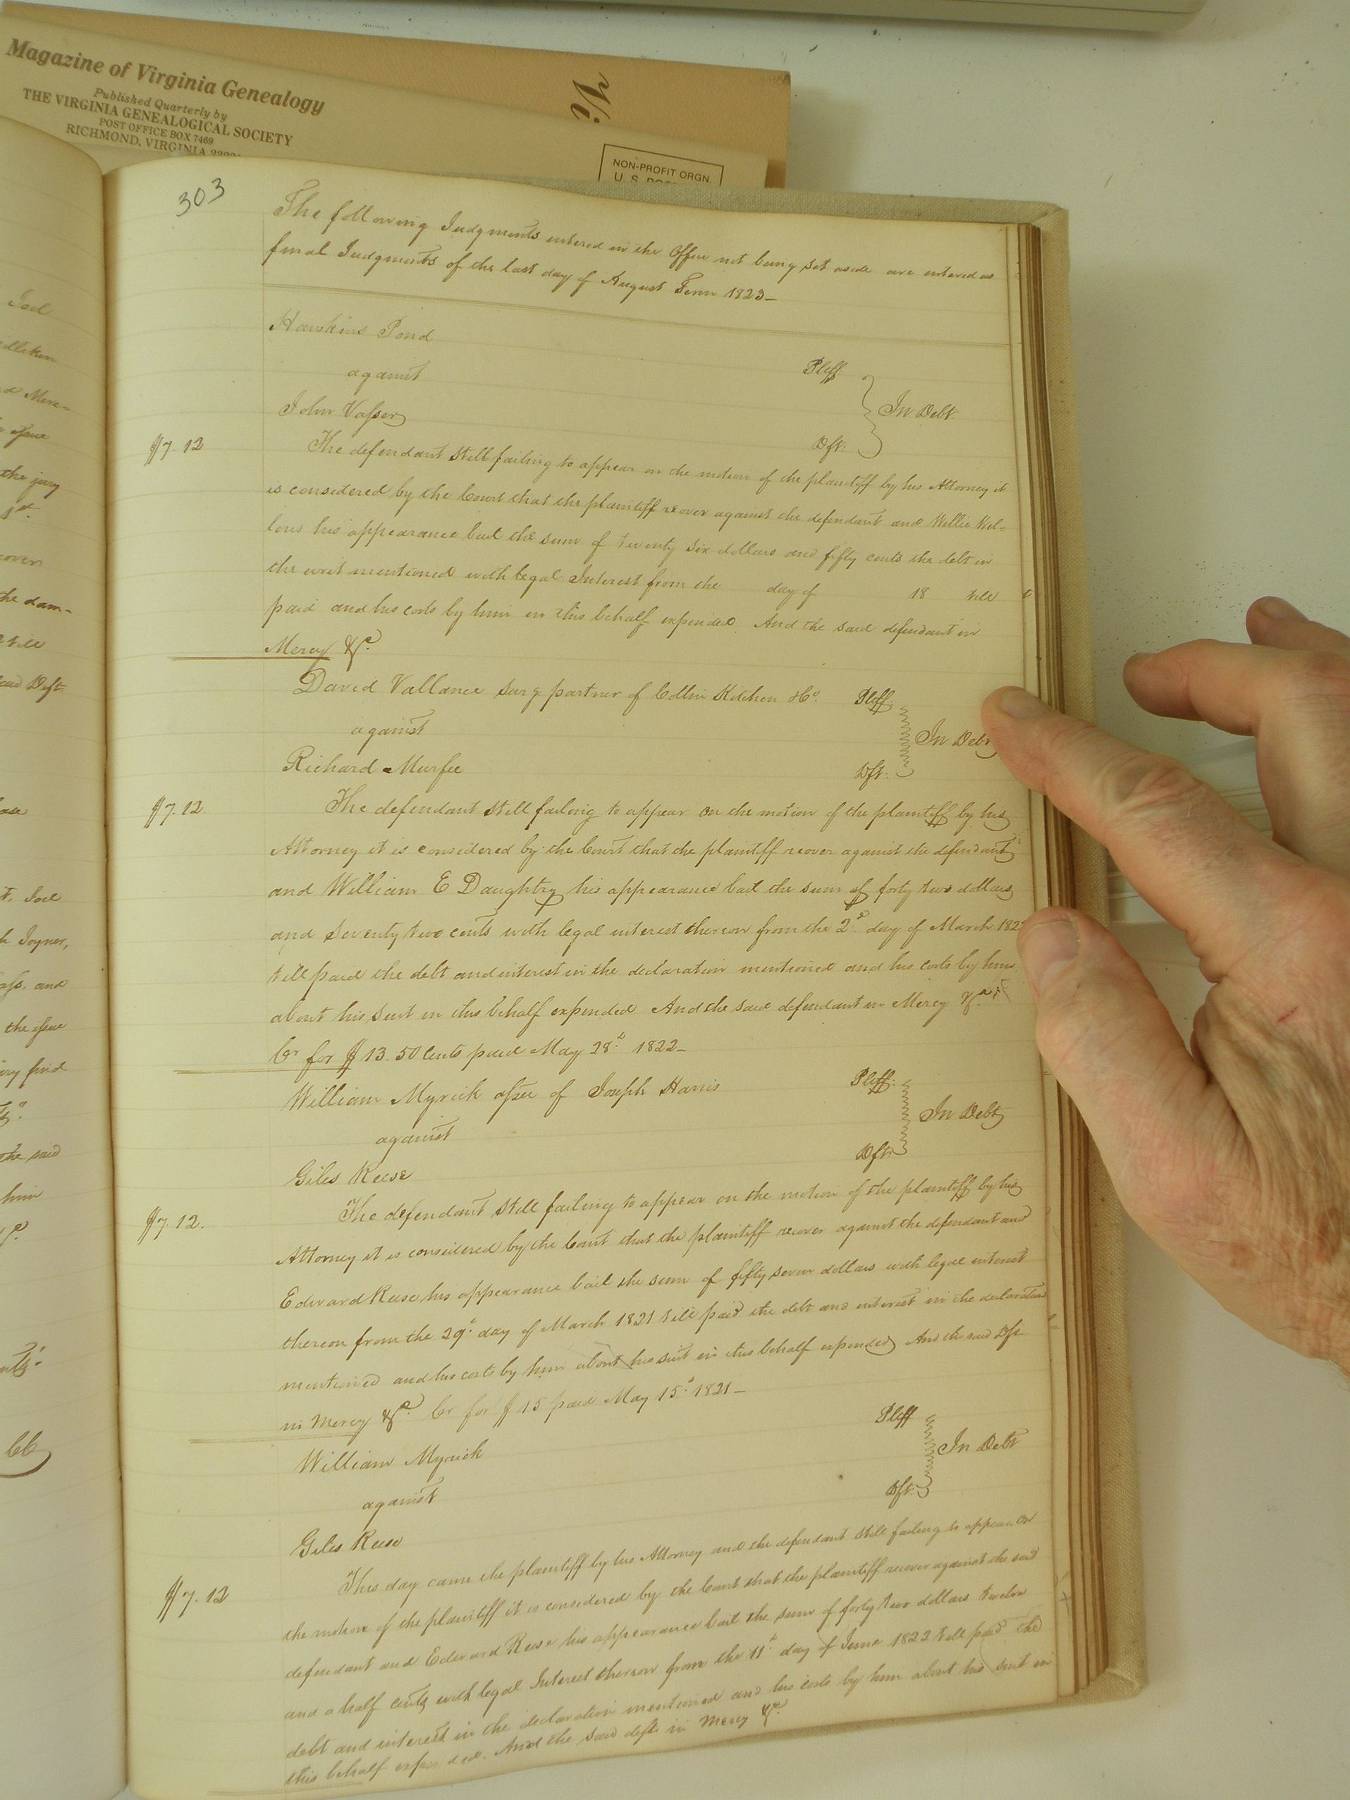 Magazine of Virginia Genealogy
Published Quarterly by
THE VIRGINIA GENEALOGICAL SOCIETY
POST OFFICE BOX 7469
RICHMOND, VIRGINIA
NON-PROFIT ORGN.
303
The following Judgments entered in the Office not being set aside are entered as
final Judgments of the last day of August Term 1823_
Hawkins Pond
Pltff
against
In Debt
John Vasser
Dft.
$7.12
The defendant still failing to appear on the motion of the plaintiff by his Attorney it
is considered by the Court that the plaintiff recover against the defendant and Willie
his appearance bail the sum of twenty six dollars and fifty cents the debt in
the writ mentioned with legal Interest from the day of 18 till
paid and his costs by him in this behalf expended. And the said defendant in
Mercy &c.
David Vallance surg partner of Collin Kitchen & Co. Pltff.
against
In Debt
Richard Murfee
Dft.
$7.12
The defendant still failing to appear on the motion of the plaintiff by his
Attorney it is considered by the Court that the plaintiff recover against the defendant
and William E Daughtry his appearance bail the sum of forty two dollars
and Seventy two cents with legal interest thereon from the 2d day of March 182
till paid the debt and interest in the declaration mentioned and his costs by him
about his suit in this behalf expended And the said defendant in Mercy &c.
Cr for $13.50 Cents paid May 28th 1822_
William Myrick assee of Joseph Harris
Pltff.
against
In Debt
Giles Reese
Dft.
$7.12.
The defendant still failing to appear on the motion of the plaintiff by his
Attorney it is considered by the Court that the plaintiff recover against the defendant and
Edward Reese his appearance bail the sum of fifty seven dollars with legal interest
thereon from the 29th day of March 1821 till paid the debt and interest in the declaration
mentioned and his costs by him about his suit in this behalf expended And the said Dft
in Mercy &c. Cr for $15 paid May 15th 1821_
William Myrick
Pltff
against
In Debt
Giles Reese
Dft.
$7.12
This day came the plaintiff by his Attorney and the defendant still failing to appear on
the motion of the plaintiff it is considered by the Court that the plaintiff recover against the said
defendant and Edward Reese his appearance bail the sum of forty two dollars twelve
and a half cents with legal Interest thereon from the 11th day of June 1822 till paid the
debt and interest in the declaration mentioned and his costs by him about his suit in
this behalf expended. And the said deft in Mercy &c.